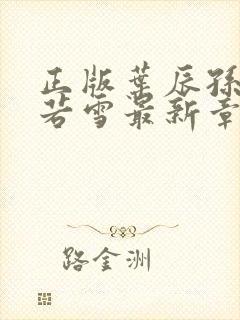 正版叶辰孙
若雪最新章
路金洲